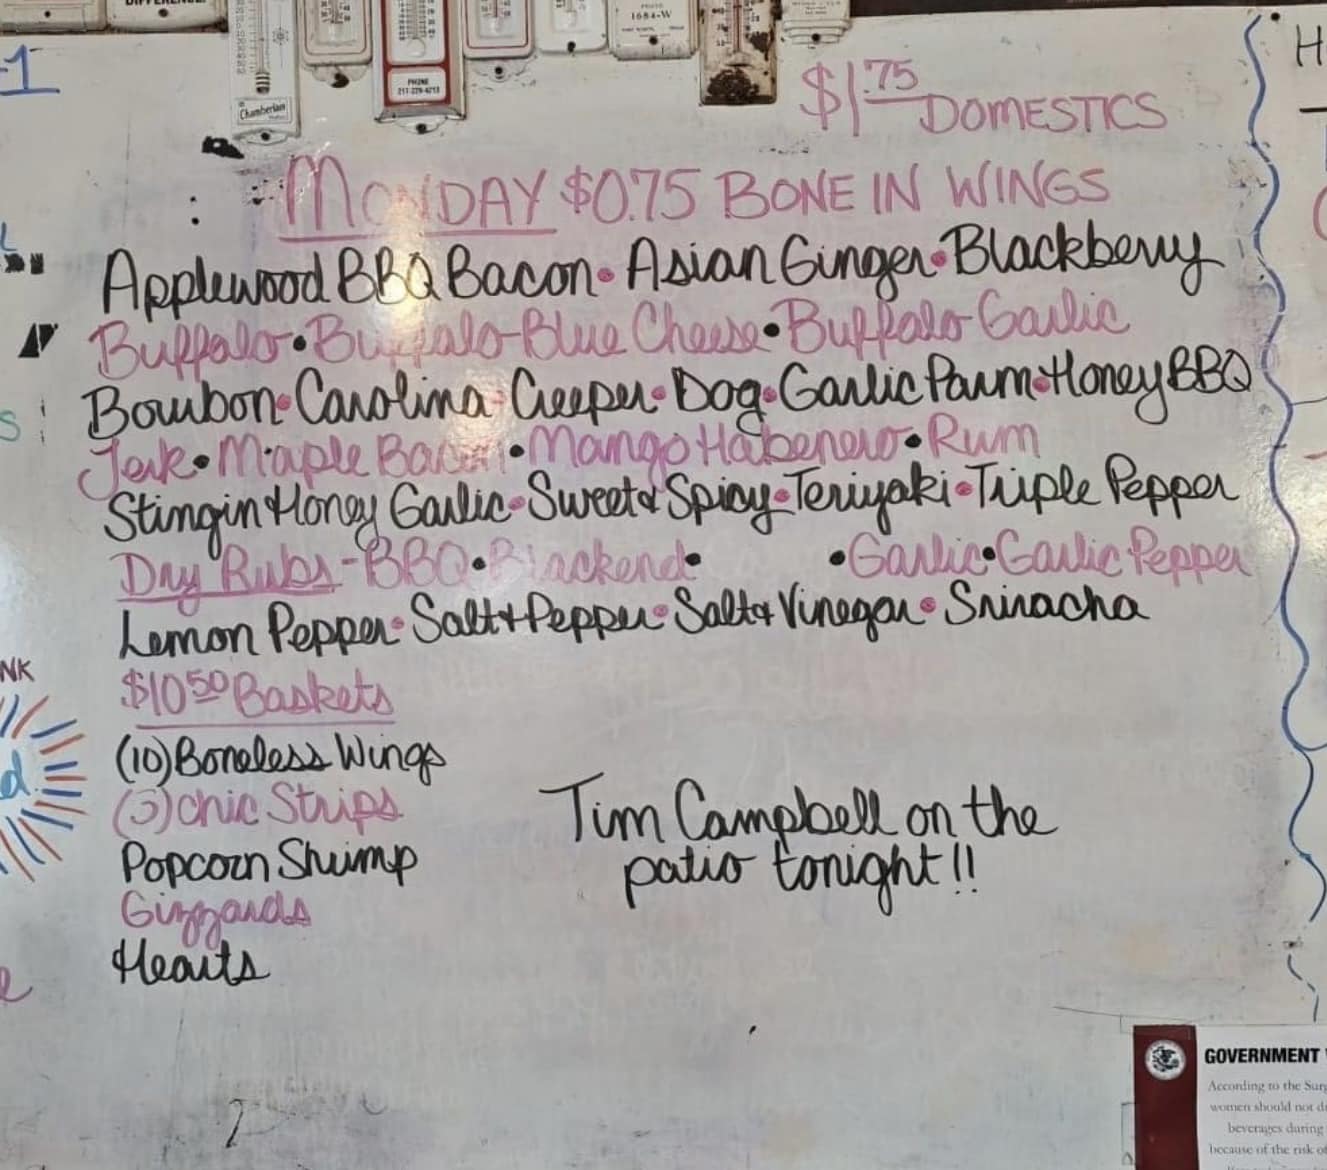 DIFFERENCE.
1684-W
PHONE
217-229-4213
Chamberlain
-1
H
$1.75 DOMESTICS
MONDAY $0.75 BONE IN WINGS
Applewood BBQ Bacon • Asian Ginger • Blackberry
Buffalo • Buffalo-Blue Cheese • Buffalo Garlic
Bourbon • Carolina • Creeper • Dog • Garlic Parm • Honey BBQ
Jerk • Maple Bacon • Mango Habenero • Rum
Stingin Honey Garlic • Sweet & Spicy • Teriyaki • Triple Pepper
Dry Rubs - BBQ • Blackend • • Garlic • Garlic Pepper
Lemon Pepper • Salt & Pepper • Salt & Vinegar • Sriracha
$10.50 Baskets
(10) Boneless Wings
(5) Chic Strips
Popcorn Shrimp
Gizzards
Hearts
Tim Campbell on the
patio tonight!!
NK
GOVERNMENT
According to the Sur
women should not d
beverages during
because of the risk of